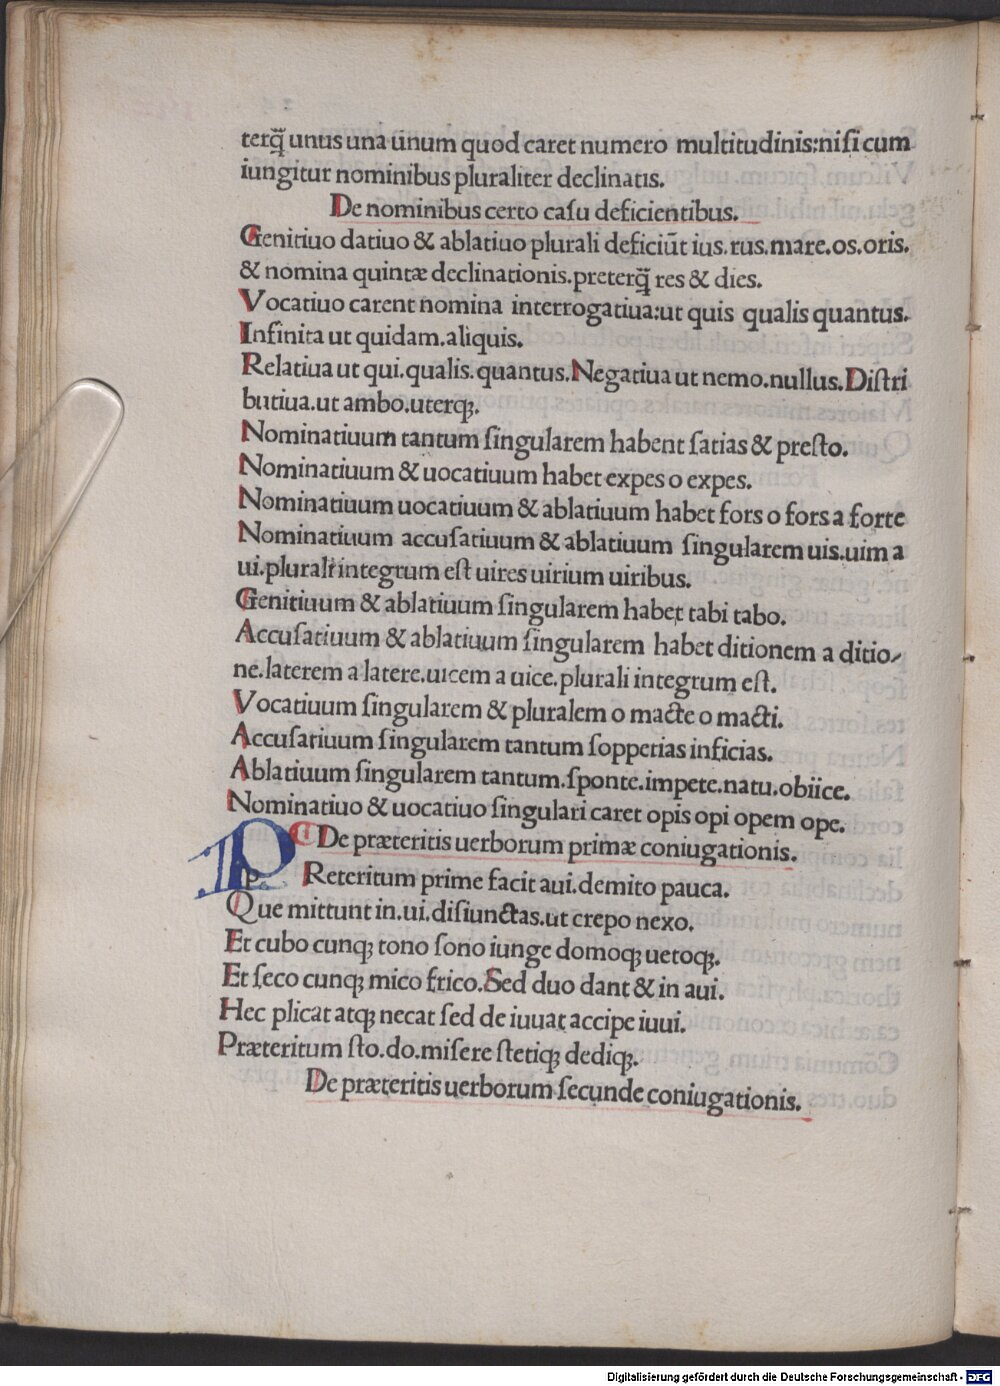 terq̃ unus una unum quod caret numero multitudinis:nisi cum
iungitur nominibus pluraliter declinatis.
De nominibus certo casu deficientibus.
Genitiuo datiuo & ablatiuo plurali deficiũt ius.rus.mare.os.oris.
& nomina quintæ declinationis.preterq̃ res & dies.
Vocatiuo carent nomina interrogatiua:ut quis qualis quantus.
Infinita ut quidam.aliquis.
Relatiua ut qui.qualis.quantus.Negatiua ut nemo.nullus.Distri
butiua.ut ambo.uterqꝫ.
Nominatiuum tantum singularem habent satias & presto.
Nominatiuum & uocatiuum habet expes o expes.
Nominatiuum uocatiuum & ablatiuum habet fors o fors a forte
Nominatiuum accusatiuum & ablatiuum singularem uis.uim a
ui.plurali integrum est uires uirium uiribus.
Genitiuum & ablatiuum singularem habet tabi tabo.
Accusatiuum & ablatiuum singularem habet ditionem a ditio-
ne.laterem a latere.uicem a uice.plurali integrum est.
Vocatiuum singularem & pluralem o macte o macti.
Accusatiuum singularem tantum soppetias inficias.
Ablatiuum singularem tantum.sponte.impete.natu.obiice.
Nominatiuo & uocatiuo singulari caret opis opi opem ope.
De præteritis uerborum primæ coniugationis.
P Reteritum prime facit aui.demito pauca.
Que mittunt in.ui.disiunctas.ut crepo nexo.
Et cubo cunqꝫ tono sono iunge domoqꝫ uetoqꝫ.
Et seco cunqꝫ mico frico.Sed duo dant & in aui.
Hec plicat atqꝫ necat sed de iuuat accipe iuui.
Præteritum sto.do.misere stetiqꝫ dediqꝫ.
De præteritis uerborum secunde coniugationis.
Digitalisierung gefördert durch die Deutsche Forschungsgemeinschaft - DFG